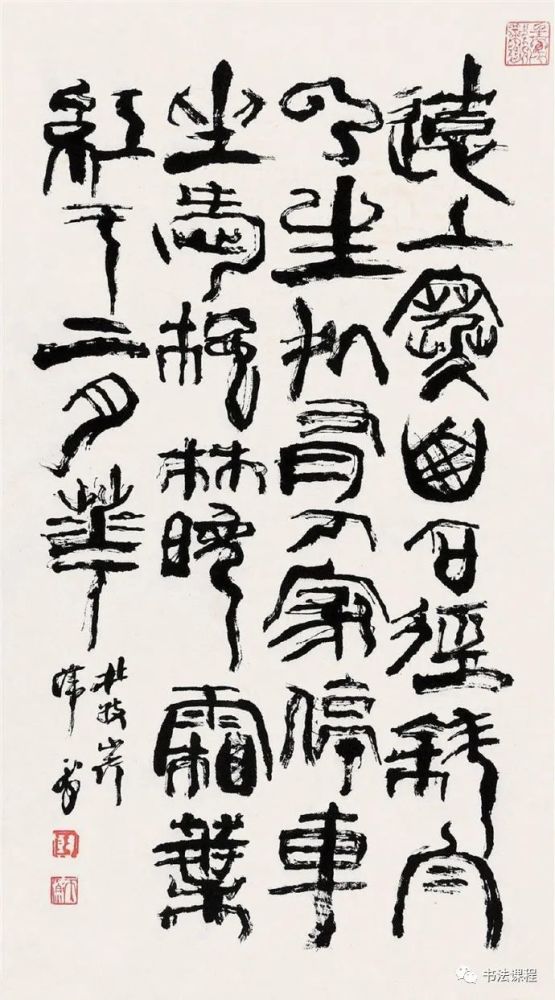 遠上寒山石徑斜白
云生処有人家停車
坐愛楓林晚霜葉
紅于二月華
杜牧山行
书法课程